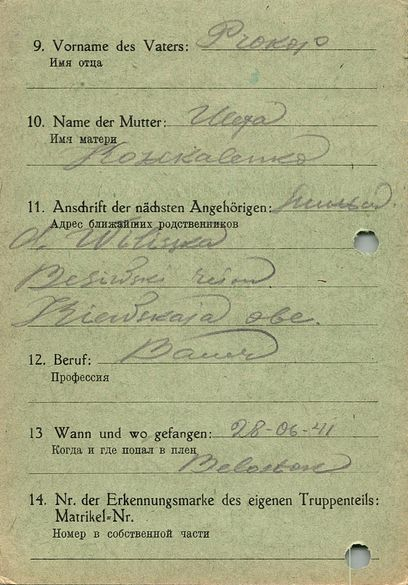 9. Vorname des Vaters: Prokop
Имя отца
10. Name der Mutter:
Имя матери
11. Anschrift der nächsten Angehörigen:
Адрес ближайших родственников
d.
Kiewskaja
12. Beruf: Bauer
Профессия
13 Wann und wo gefangen: 28-06-41
Когда и где попал в плен
Belostok
14. Nr. der Erkennungsmarke des eigenen Truppenteils:
Matrikel-Nr.
Номер в собственной части